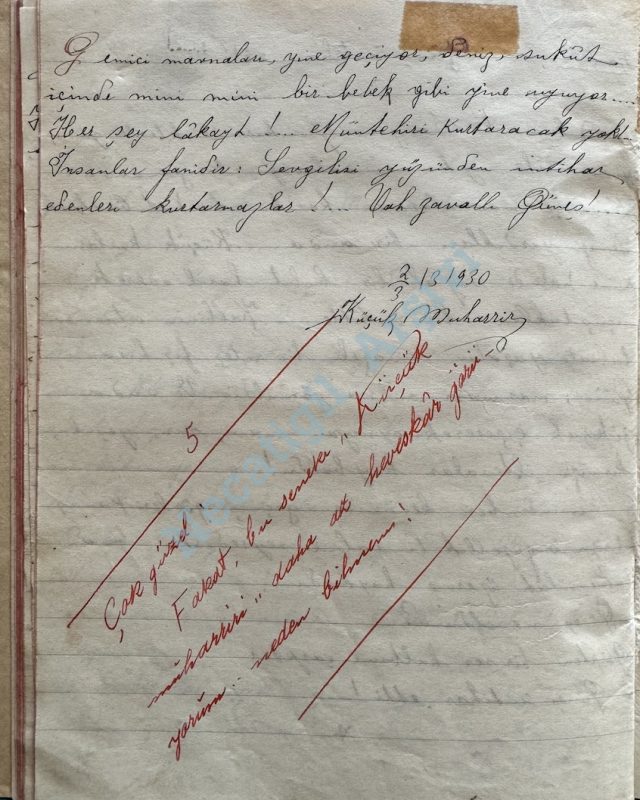 Gemici mavnaları, yine geçiyor, deniz, sukût
içinde mini mini bir bebek gibi yine uyuyor....
Her şey lâkayt !... Müntehiri kurtaracak yok!..
İnsanlar fanidir: Sevgilisi yüzünden intihar
edenleri kurtarmazlar !... Vah zavallı Güneş!...
2/3 /3/930
Küçük Muharrir
5
Çok güzel!
Fakat, bu seneki „Küçük
müharriri„ daha az heveskâr görü-
yorum.. neden bilmem!
Necatigil Arşivi